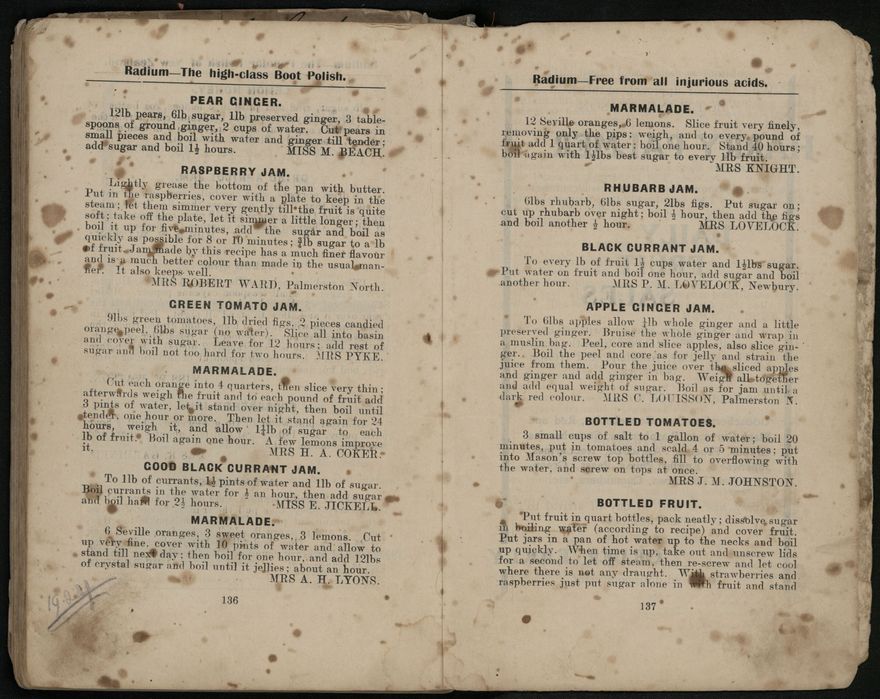 Radium—The high-class Boot Polish.
PEAR GINGER.
12lb pears, 6lb sugar, 1lb preserved ginger, 3 table-
spoons of ground ginger, 2 cups of water. Cut pears in
small pieces and boil with water and ginger till tender;
add sugar and boil 1½ hours. MISS M. BEACH.
RASPBERRY JAM.
Lightly grease the bottom of the pan with butter.
Put in the raspberries, cover with a plate to keep in the
steam; let them simmer very gently till the fruit is quite
soft; take off the plate, let it simmer a little longer; then
boil it up for five minutes, add the sugar and boil as
quickly as possible for 8 or 10 minutes; ¾lb sugar to a lb
of fruit. Jam made by this recipe has a much finer flavour
and is a much better colour than made in the usual man-
ner. It also keeps well.
MRS ROBERT WARD, Palmerston North.
GREEN TOMATO JAM.
9lbs green tomatoes, 1lb dried figs, 2 pieces candied
orange peel, 6lbs sugar (no water). Slice all into basin
and cover with sugar. Leave for 12 hours; add rest of
sugar and boil not too hard for two hours. MRS PYKE.
MARMALADE.
Cut each orange into 4 quarters, then slice very thin;
afterwards weigh the fruit and to each pound of fruit add
3 pints of water, let it stand over night, then boil until
tender, one hour or more. Then let it stand again for 24
hours, weigh it, and allow 1¼lb of sugar to each
lb of fruit. Boil again one hour. A few lemons improve
it. MRS H. A. COKER.
GOOD BLACK CURRANT JAM.
To 1lb of currants, 1½ pints of water and 1lb of sugar.
Boil currants in the water for ½ an hour, then add sugar
and boil hard for 2½ hours. MISS E. JICKELL.
MARMALADE.
6 Seville oranges, 3 sweet oranges, 3 lemons. Cut
up very fine, cover with 10 pints of water and allow to
stand till next day; then boil for one hour, and add 12lbs
of crystal sugar and boil until it jellies; about an hour.
MRS A. H. LYONS.
136
Radium—Free from all injurious acids.
MARMALADE.
12 Seville oranges, 6 lemons. Slice fruit very finely,
removing only the pips; weigh, and to every pound of
fruit add 1 quart of water; boil one hour. Stand 40 hours;
boil again with 1½lbs best sugar to every 1lb fruit.
MRS KNIGHT.
RHUBARB JAM.
6lbs rhubarb, 6lbs sugar, 2lbs figs. Put sugar on;
cut up rhubarb over night; boil ½ hour, then add the figs
and boil another ½ hour. MRS LOVELOCK.
BLACK CURRANT JAM.
To every lb of fruit 1½ cups water and 1½lbs sugar.
Put water on fruit and boil one hour, add sugar and boil
another hour. MRS P. M. LOVELOCK, Newbury.
APPLE GINGER JAM.
To 6lbs apples allow ½lb whole ginger and a little
preserved ginger. Bruise the whole ginger and wrap in
a muslin bag. Peel, core and slice apples, also slice gin-
ger. Boil the peel and core as for jelly and strain the
juice from them. Pour the juice over the sliced apples
and ginger and add ginger in bag. Weigh all together
and add equal weight of sugar. Boil as for jam until a
dark red colour. MRS C. LOUISSON, Palmerston N.
BOTTLED TOMATOES.
3 small cups of salt to 1 gallon of water; boil 20
minutes, put in tomatoes and scald 4 or 5 minutes; put
into Mason's screw top bottles, fill to overflowing with
the water, and screw on tops at once.
MRS J. M. JOHNSTON.
BOTTLED FRUIT.
Put fruit in quart bottles, pack neatly; dissolve sugar
in boiling water (according to recipe) and cover fruit.
Put jars in a pan of hot water up to the necks and boil
up quickly. When time is up, take out and unscrew lids
for a second to let off steam, then re-screw and let cool
where there is not any draught. With strawberries and
raspberries just put sugar alone in with fruit and stand
137